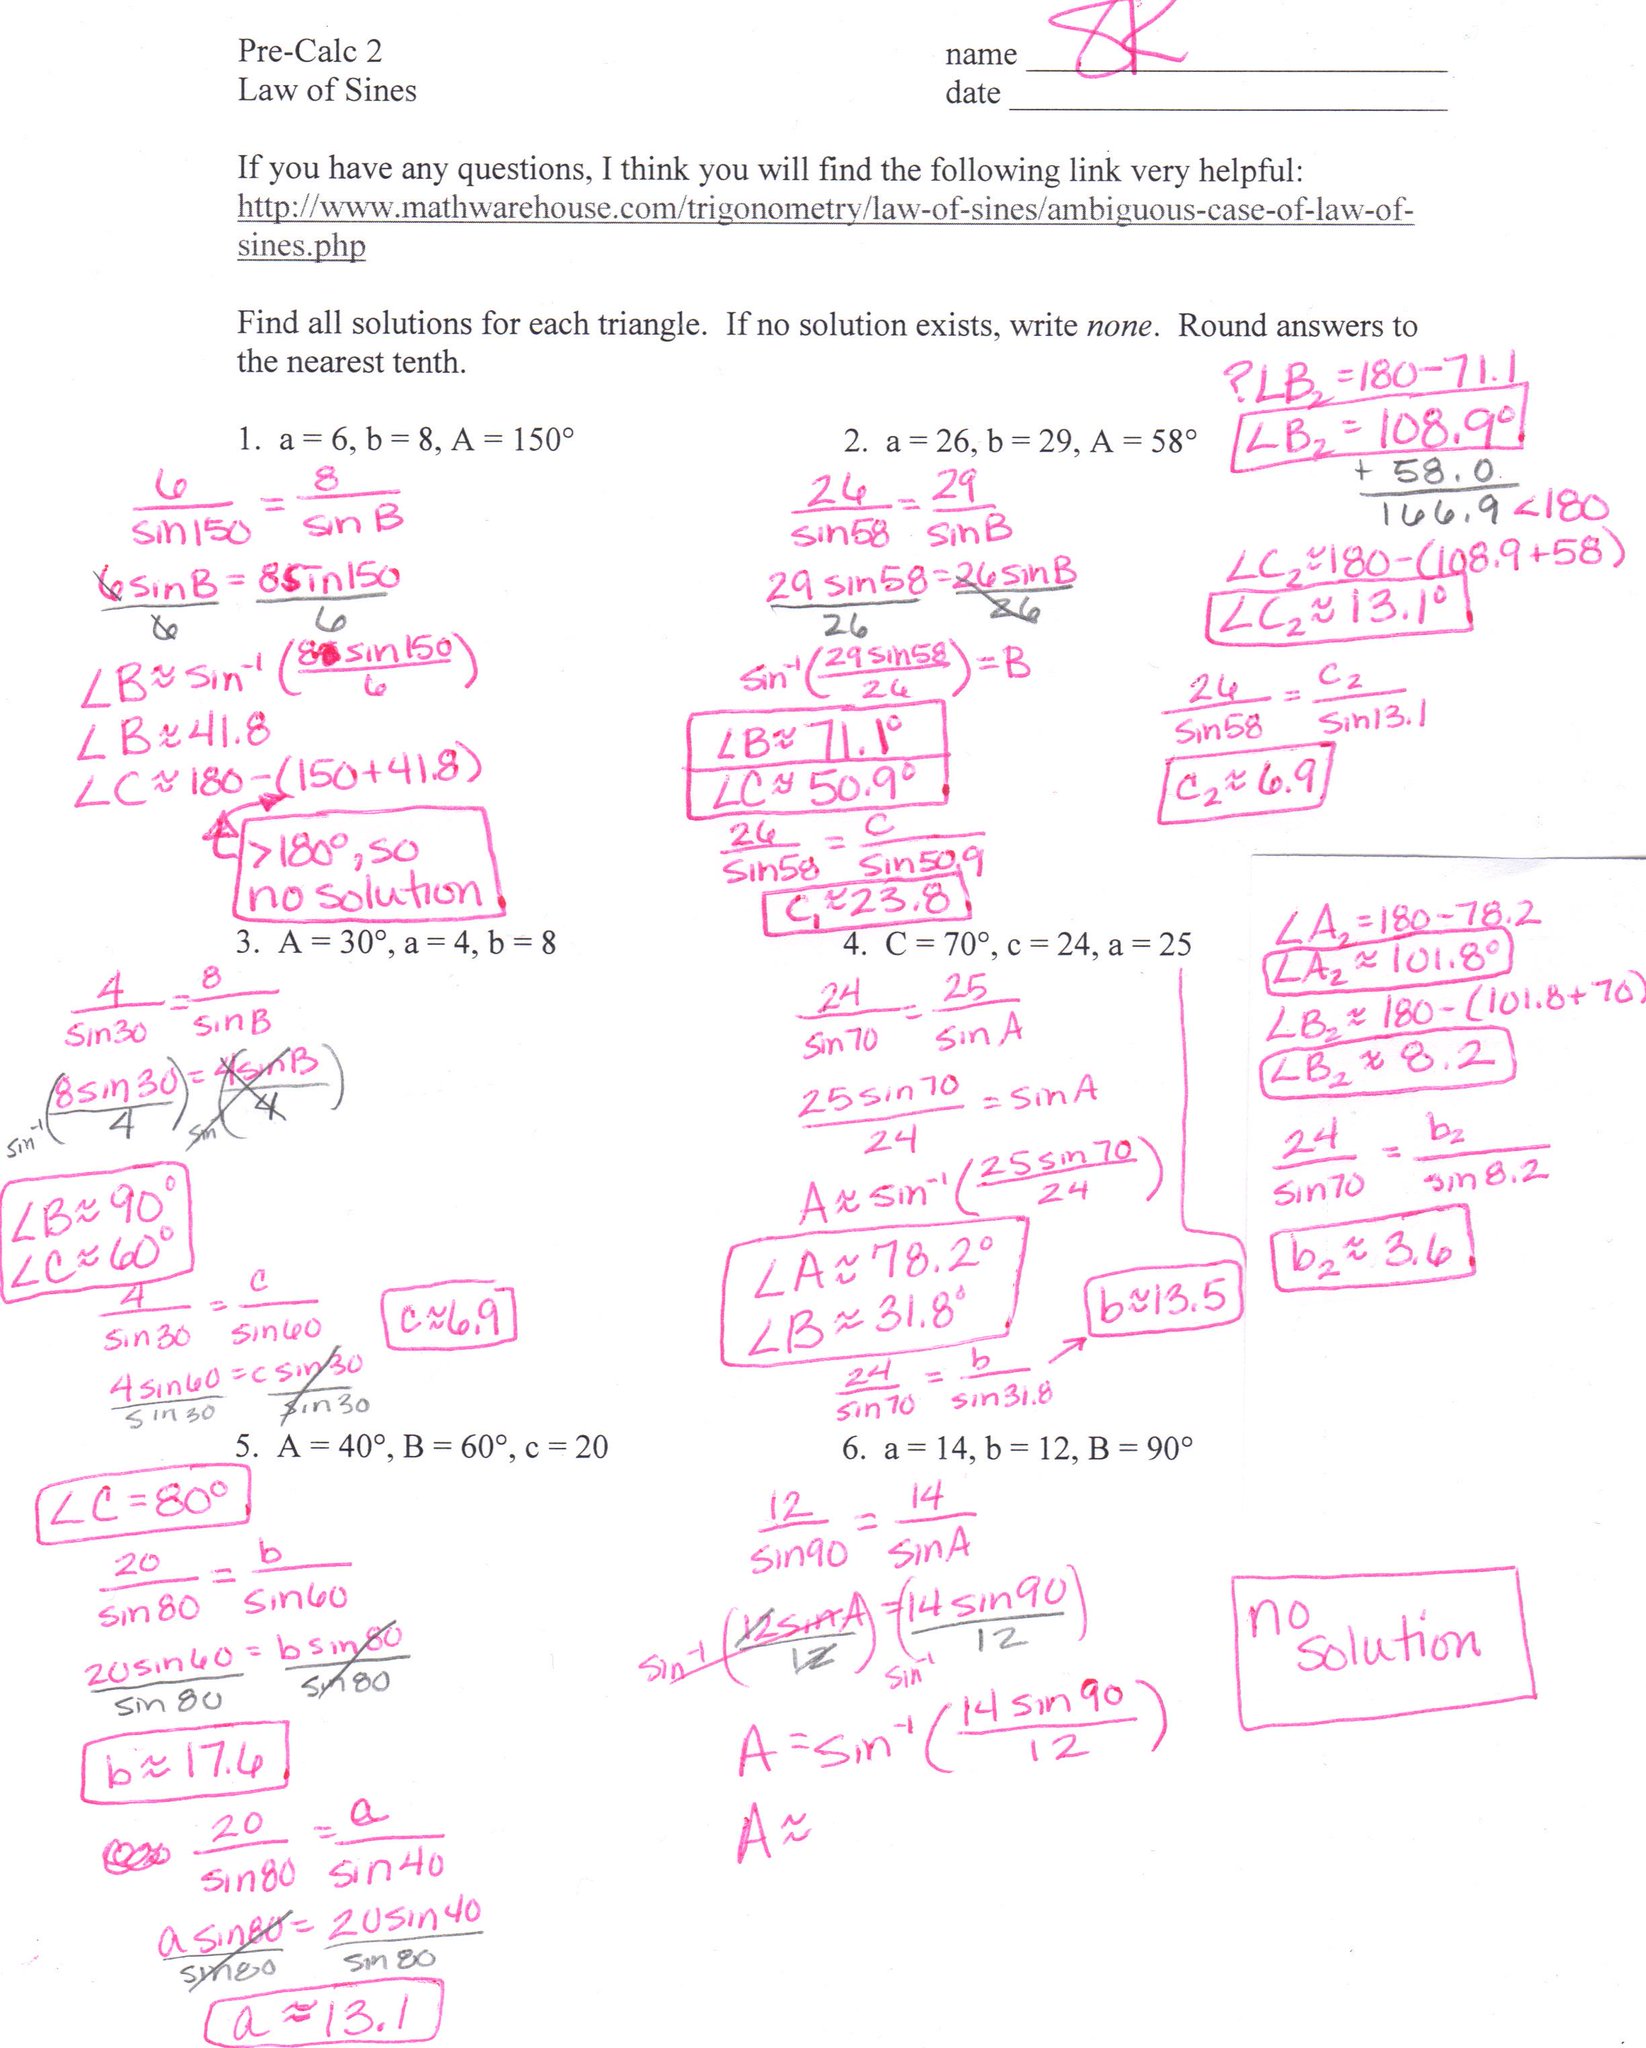 Pre-Calc 2
name SK
Law of Sines
date
If you have any questions, I think you will find the following link very helpful:
http://www.mathwarehouse.com/trigonometry/law-of-sines/ambiguous-case-of-law-of-
sines.php
Find all solutions for each triangle. If no solution exists, write none. Round answers to
the nearest tenth.
1. a = 6, b = 8, A = 150°
6/sin150 = 8/sin B
6 sinB/6 = 8sin150/6
∠B ≈ sin⁻¹(8 sin150/6)
∠B ≈ 41.8
∠C ≈ 180 - (150+41.8)
>180°, so
no solution
2. a = 26, b = 29, A = 58°
26/sin58 = 29/sinB
29 sin58/26 = 26 sinB/26
sin⁻¹(29 sin58/26) = B
∠B ≈ 71.1°
∠C ≈ 50.9°
26/sin58 = c/sin50.9
c₁ ≈ 23.8
?∠B₂ = 180-71.1
∠B₂ = 108.9°
+ 58.0
166.9 <180
∠C₂ ≈ 180-(108.9+58)
∠C₂ ≈ 13.1°
26/sin58 = c₂/sin13.1
c₂ ≈ 6.9
3. A = 30°, a = 4, b = 8
4/sin30 = 8/sinB
sin⁻¹(8 sin30/4) = sin(4sinB/4)
∠B ≈ 90°
∠C ≈ 60°
4/sin30 = c/sin60
c ≈ 6.9
4 sin60/sin30 = c sin30/sin30
4. C = 70°, c = 24, a = 25
24/sin70 = 25/sin A
25 sin70/24 = sin A
A ≈ sin⁻¹(25 sin70/24)
∠A ≈ 78.2°
∠B ≈ 31.8°
24/sin70 = b/sin31.8
b ≈ 13.5
∠A₂ = 180-78.2
∠A₂ ≈ 101.8°
∠B₂ ≈ 180-(101.8+70)
∠B₂ ≈ 8.2
24/sin70 = b₂/sin8.2
b₂ ≈ 3.6
5. A = 40°, B = 60°, c = 20
∠C = 80°
20/sin80 = b/sin60
20 sin60/sin80 = b sin80/sin80
b ≈ 17.6
20/sin80 = a/sin40
a sin80/sin80 = 20sin40/sin80
a ≈ 13.1
6. a = 14, b = 12, B = 90°
12/sin90 = 14/sinA
sin⁻¹(12sinA/12) = sin⁻¹(14 sin90/12)
A = sin⁻¹(14 sin90/12)
A ≈
no
solution